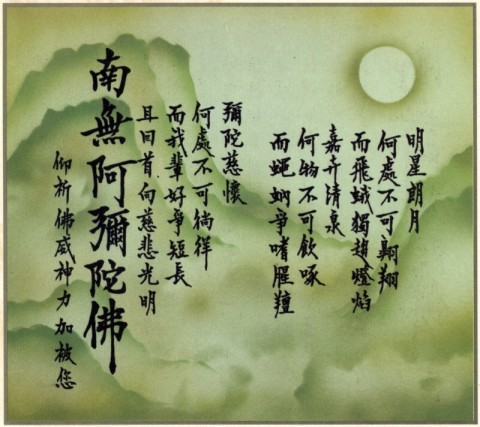 明星朗月
何處不可翱翔
而飛蛾獨趨燈焰
嘉卉清泉
何物不可飲啄
而蠅蚋爭嗜腥羶
彌陀慈懷
何處不可徜徉
而我輩好爭短長
且回首向慈悲光明
南無阿彌陀佛
仰祈佛威神力加被您